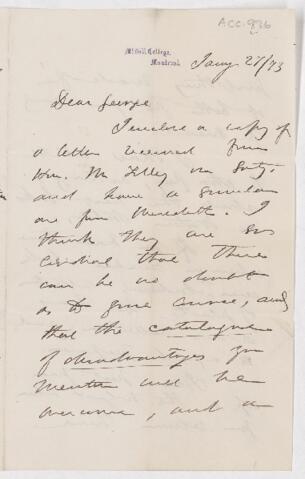 ACC. 986
McGill College,
Montreal.
Jany 27/73
Dear George
I enclose a copy of
a letter received from
Hon. Mr Tilley on Saty.
and have a similar
one from Meredith. I
think they are so
cordial that there
can be no doubt
as to your course, and
that the catalogue
of disadvantages you
mention will be
overcome, and a